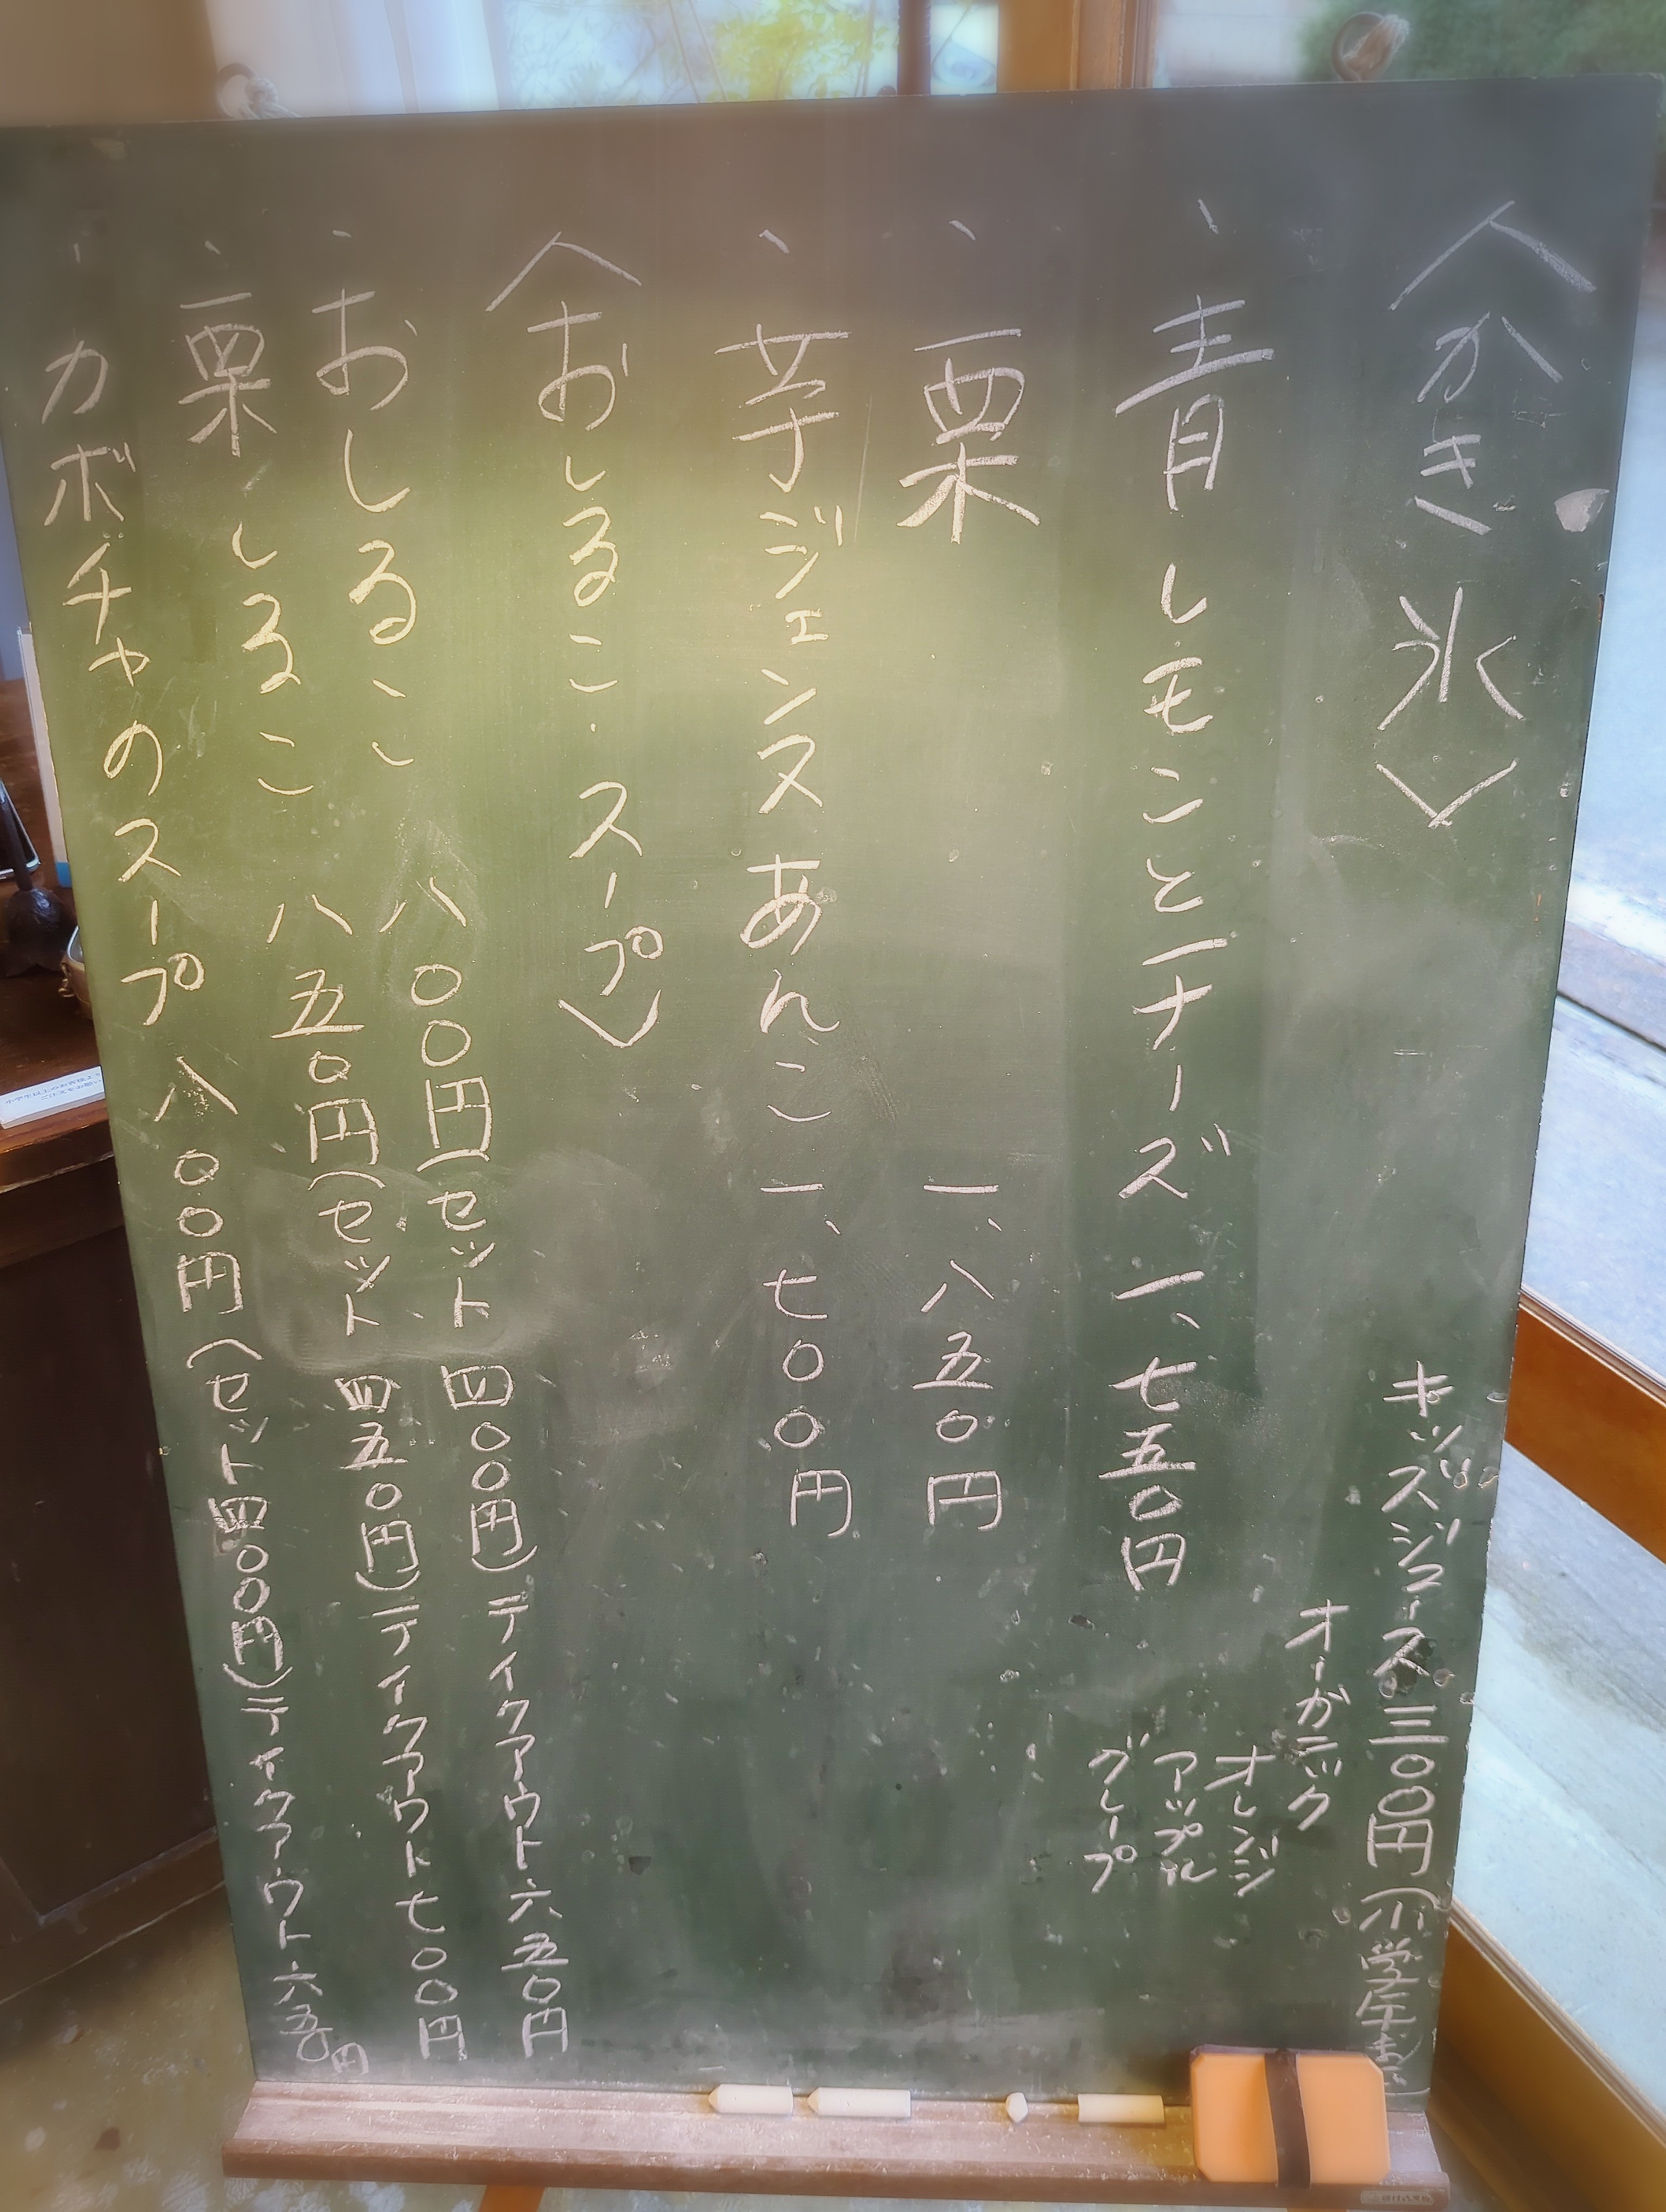 〈かき氷〉
キッズジュース三〇〇円(小学生まで)
オーガニック
オレンジ
アップル
グレープ
、青レモンとチーズ 一、七五〇円
、栗 一、八五〇円
、芋ジェンスあんこ 一、七〇〇円
〈おしるこ・スープ〉
、おしるこ 八〇〇円(セット四〇〇円)テイクアウト六五〇円
、栗しるこ 八五〇円(セット四五〇円)テイクアウト七〇〇円
、カボチャのスープ 八〇〇円(セット四〇〇円)テイクアウト六五〇円